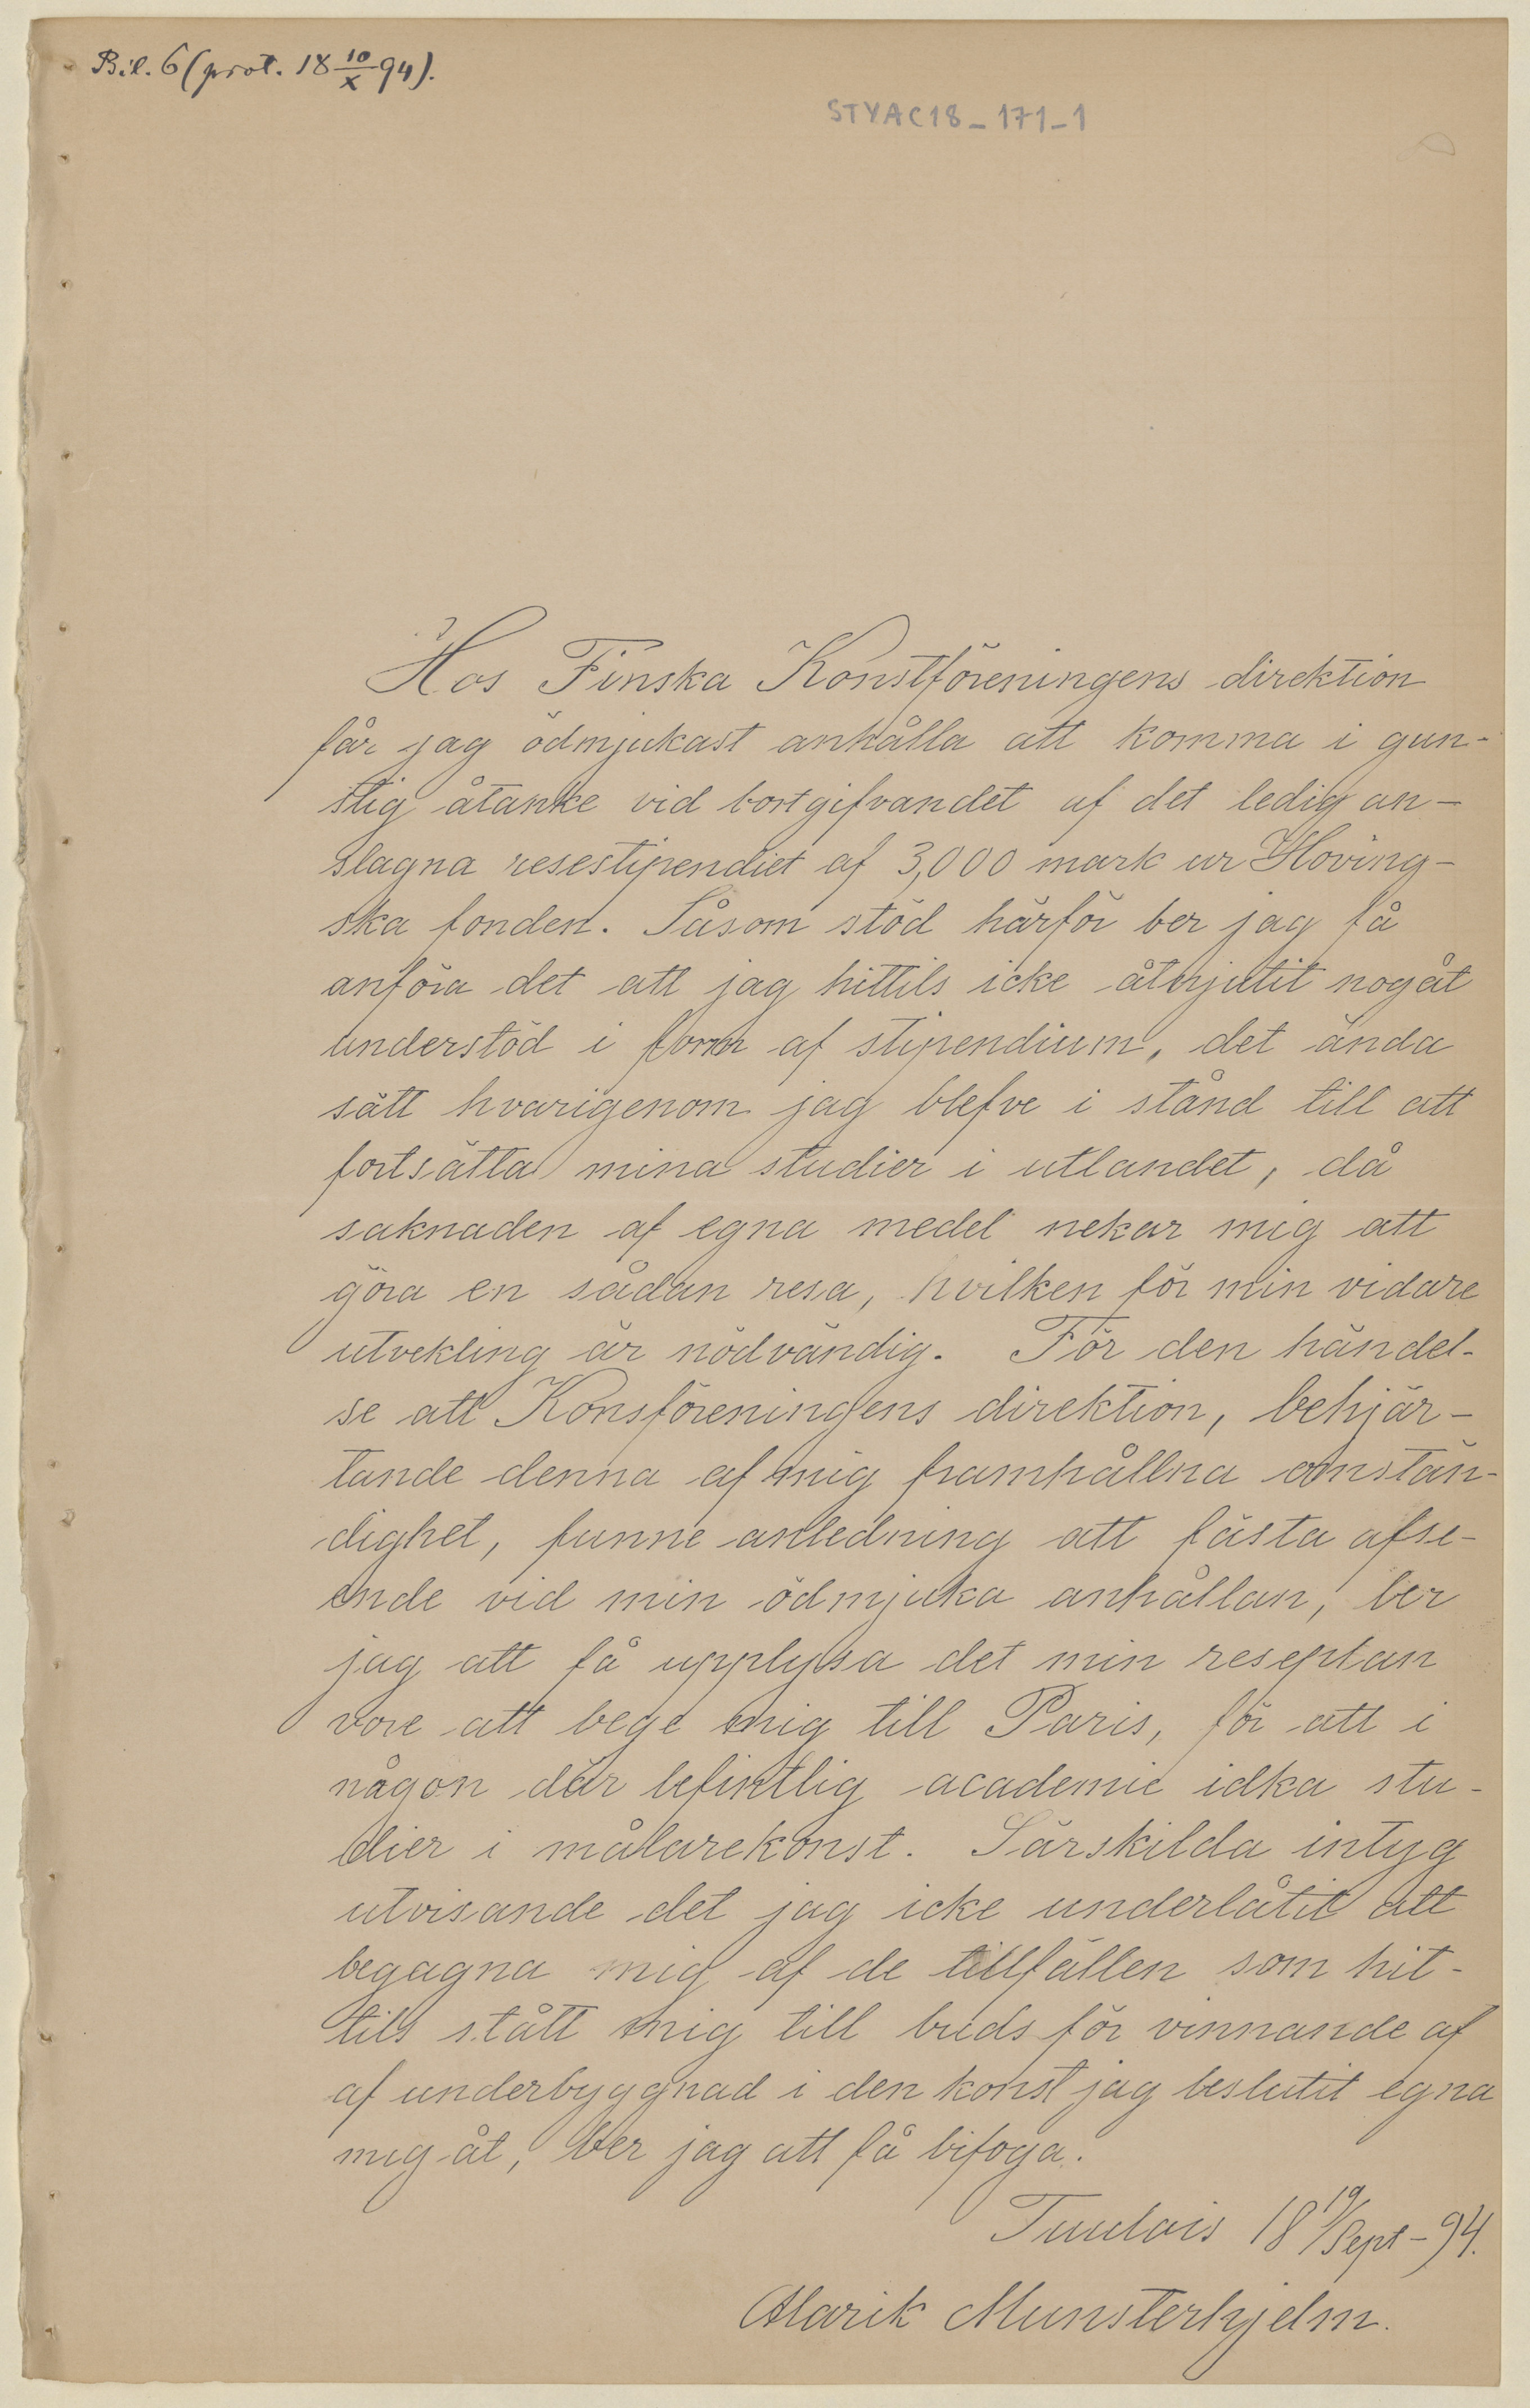 Bil. 6 (prot. 18 10/X 94).
STYAC18_171_1
Hos Finska Konstföreningens direktion
får jag ödmjukast anhålla att komma i gun-
stig åtanke vid bortgifvandet af det ledig an-
slagna resestipendiet af 3,000 mark ur Hoving-
ska fonden. Såsom stöd härför ber jag få
anföra det att jag hittils icke åtnjutit nogåt
understöd i form af stipendium, det ända
sätt hvarigenom jag blefve i stånd till att
fortsätta mina studier i utlandet, då
saknaden af egna medel nekar mig att
göra en sådan resa, hvilken för min vidare
utvekling är nödvändig. För den händel-
se att Konsföreningens direktion, behjär-
tande denna af mig framhållna omstän-
dighet, funne anledning att fästa afse-
ende vid min ödmjuka anhållan, ber
jag att få upplysa det min reseplan
vore att bege mig till Paris, för att i
någon där befintlig academie idka stu-
dier i målarekonst. Särskilda intyg
utvisande det jag icke underlåtit att
begagna mig af de tillfällen som hit-
tils stått mig till buds för vinnande af
af underbyggnad i den konst jag beslutit egna
mig åt, ber jag att få bifoga.
Tuulois 18 19/Sept - 94.
Alarik Munsterhjelm.